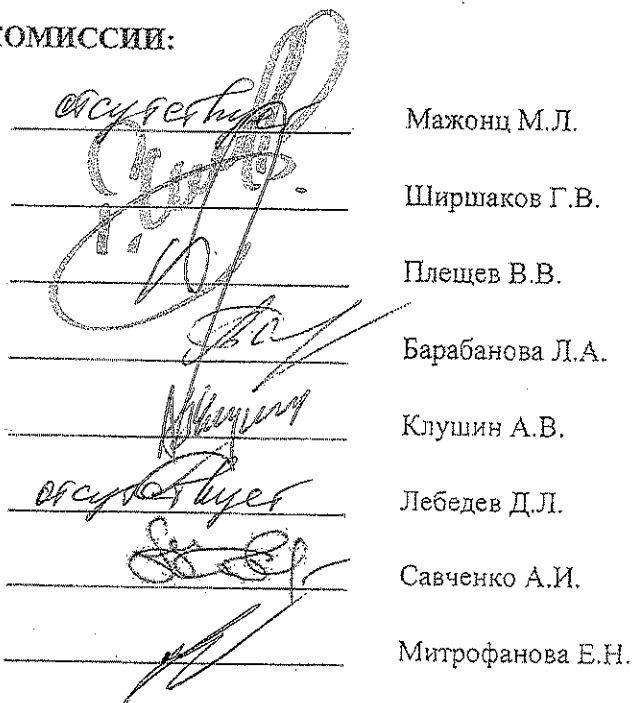 КОМИССИИ:
отсутствует Мажонц М.Л.
Ширшаков Г.В.
Плещев В.В.
Барабанова Л.А.
Клушин А.В.
отсутствует Лебедев Д.Л.
Савченко А.И.
Митрофанова Е.Н.